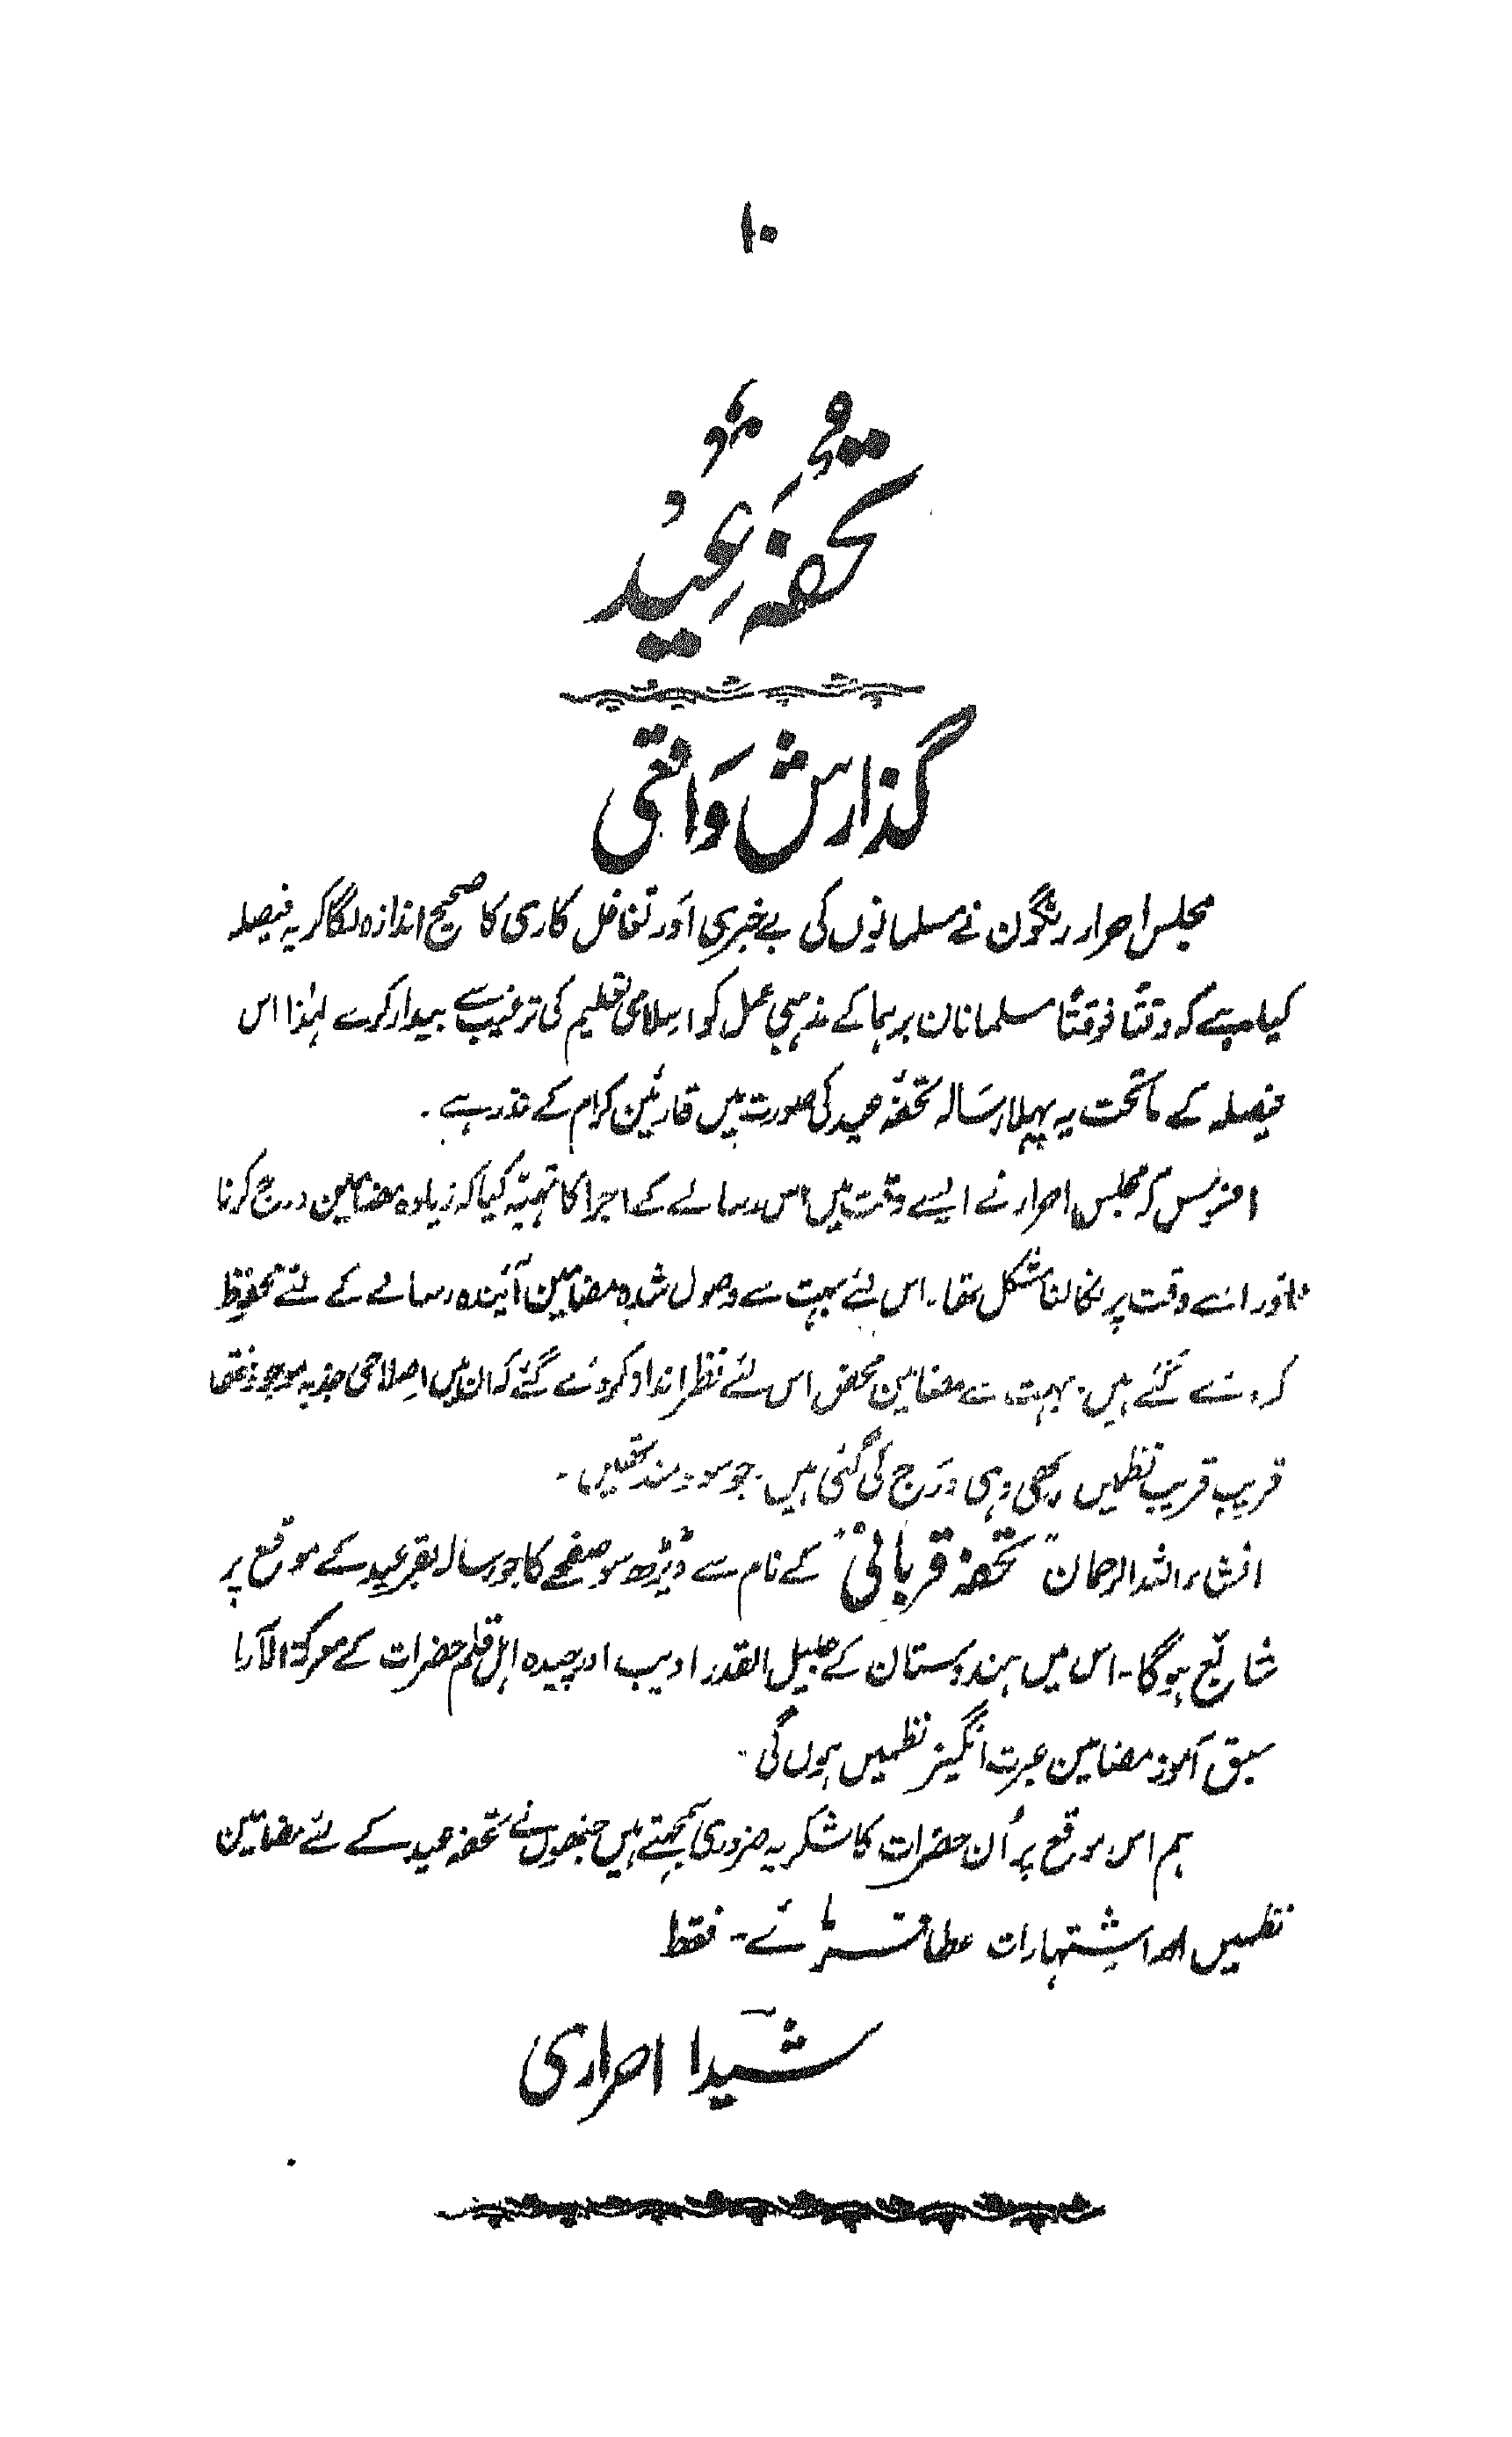 ۱۰
تحفۂ عید
گذارش واقعی
مجلس احرار رنگون نے مسلمانوں کی بے خبری اور تغافل کاری کا صحیح اندازہ لگا کر یہ فیصلہ
کیا ہے کہ وقتًا فوقتًا مسلمانان برہما کے مذہبی عمل کو اسلامی تعلیم کی ترغیب سے بیدار کرے لہٰذا اس
فیصلہ کے ماتحت یہ پہلا رسالہ تحفۂ عید کی صورت میں قارئین کرام کے نذر ہے۔
افسوس کہ مجلس احرار نے ایسے وقت میں اس رسالے کے اجرا کا تہیّہ کیا کہ زیادہ مضامین درج کرنا
اور اسے وقت پر نکالنا مشکل تھا۔ اس لئے بہت سے وصول شدہ مضامین آئندہ رسالے کے لئے محفوظ
کردئے گئے ہیں۔ بہت سے مضامین محض اس لئے نظر انداز کردئے گئے کہ ان میں اصلاحی جذبہ موجود نہ تھا
قریب قریب نظمیں بھی وہی درج کی گئی ہیں۔ جو سودمند تھیں۔
انشاء اللہ الرحمان "تحفۂ قربانی" کے نام سے ڈیڑھ سو صفحے کا جو رسالہ بقرعید کے موقع پر
شائع ہوگا۔ اس میں ہندوستان کے جلیل القدر ادیب اور چیدہ اہل قلم حضرات کے معرکۃ الآرا
سبق آموز مضامین عبرت انگیز نظمیں ہوں گی۔
ہم اس موقع پر اُن حضرات کا شکریہ ضروری سمجھتے ہیں جنھوں نے تحفۂ عید کے لئے مضامین
نظمیں اور اشتہارات عطا فرمائے۔ فقط
شیدا احراری